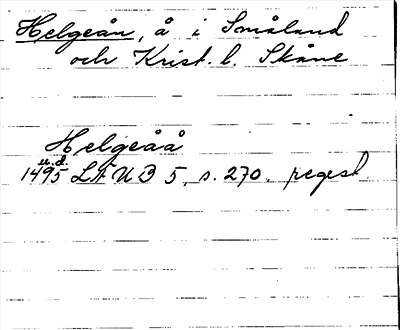 Helgeån, å i Småland
och Krist. l. Skåne
Helgeåå
u.d.
1495 LFUB 5, s. 270. regest